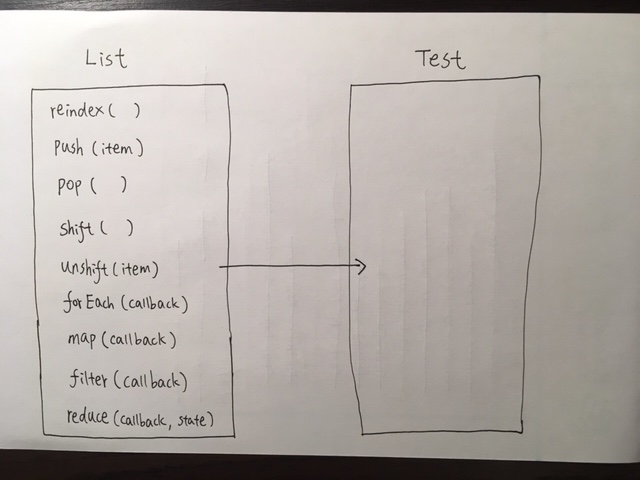 List
Test
reindex( )
push (item)
pop ( )
shift ( )
unshift (item)
forEach (callback)
map (callback)
filter (callback)
reduce (callback, state)